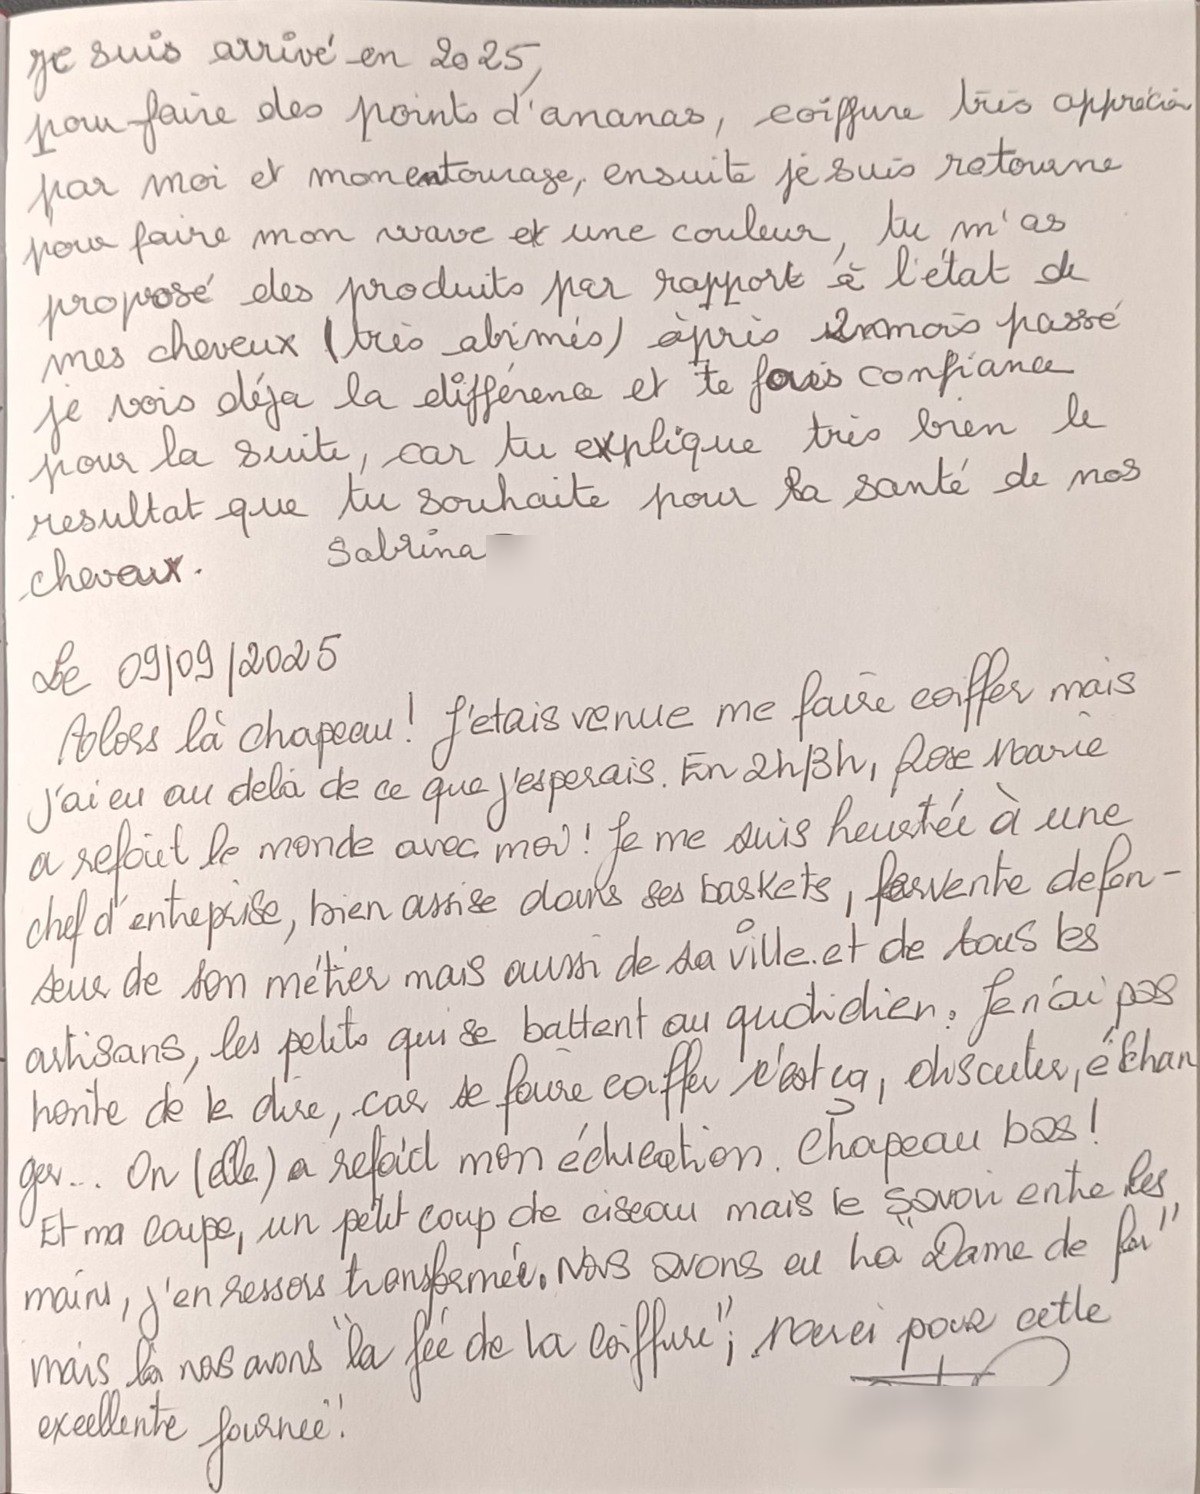 je suis arrivé en 2025,
pour faire des points d'ananas, coiffure très apprécié
par moi et mon entourage, ensuite je suis retourne
pour faire mon wave et une couleur, tu m'as
proposé des produits par rapport à l'état de
mes cheveux (très abimés) après 2 mois passé
je vois déja la différence et te fais confiance
pour la suite, car tu explique très bien le
resultat que tu souhaite pour la santé de nos
cheveux. Sabrina
Le 09/09/2025
Alors là chapeau! J'etais venue me faire coiffer mais
j'ai eu au delà de ce que j'esperais. En 2h/3h, Rose Marie
a refait le monde avec moi! Je me suis heurtée à une
chef d'entreprise, bien assise dans ses baskets, fervente défen-
seur de son métier mais aussi de sa ville et de tous les
artisans, les petits qui se battent au quotidien. Je n'ai pas
honte de le dire, car se faire coiffer c'est ça, discuter, échan
ger... On (elle) a refait mon éducation. Chapeau bas!
Et ma coupe, un petit coup de ciseau mais le savoir entre les
mains, j'en ressors transformée. Nous avons eu la "Dame de fer"
mais là nous avons "la fée de la coiffure"; merci pour cette
excellente journée!